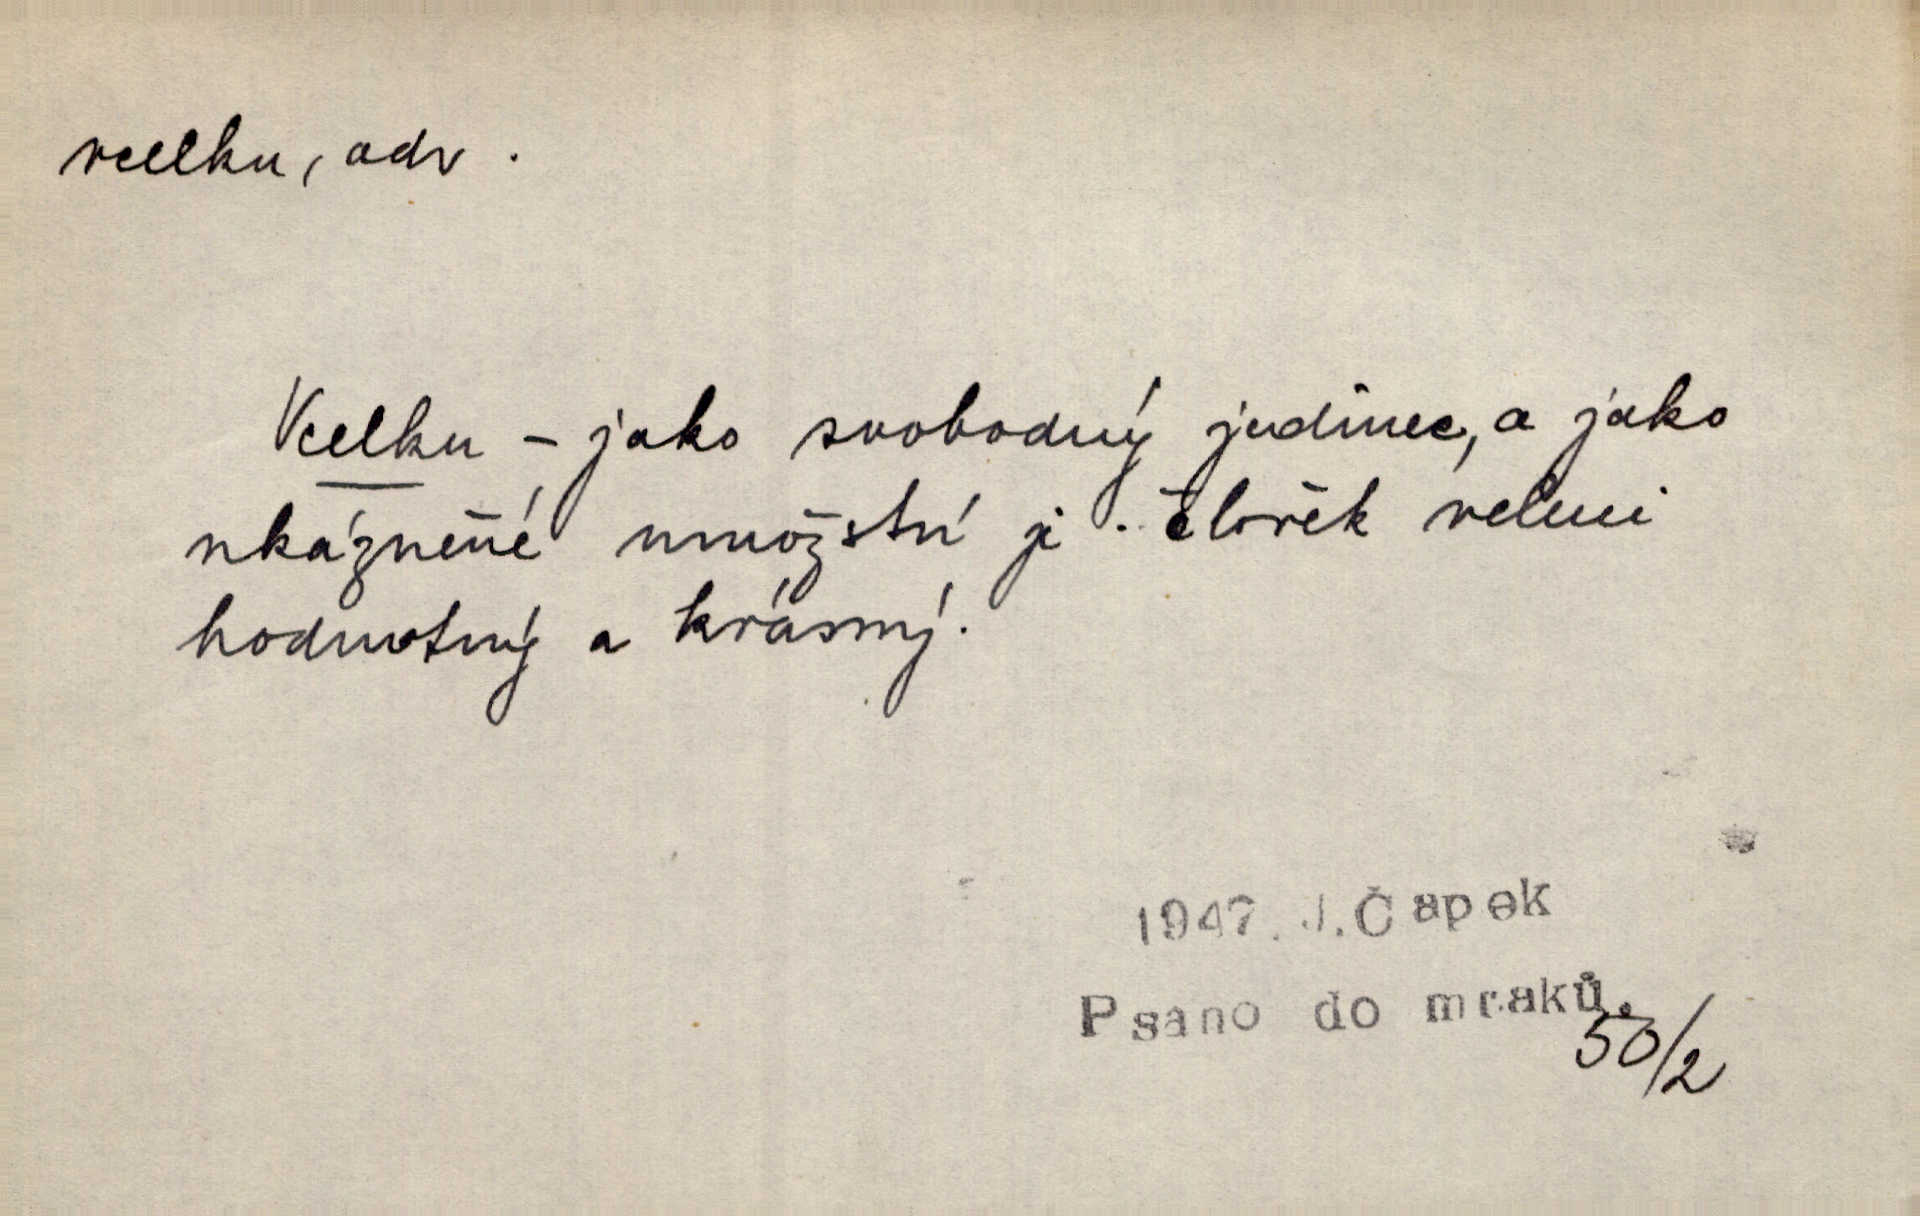 vcelku, adv.
Vcelku – jako svobodný jedinec, a jako
ukázněné množství je člověk velmi
hodnotný a krásný.
1947. J. Čapek
Psano do mraků.
50/2